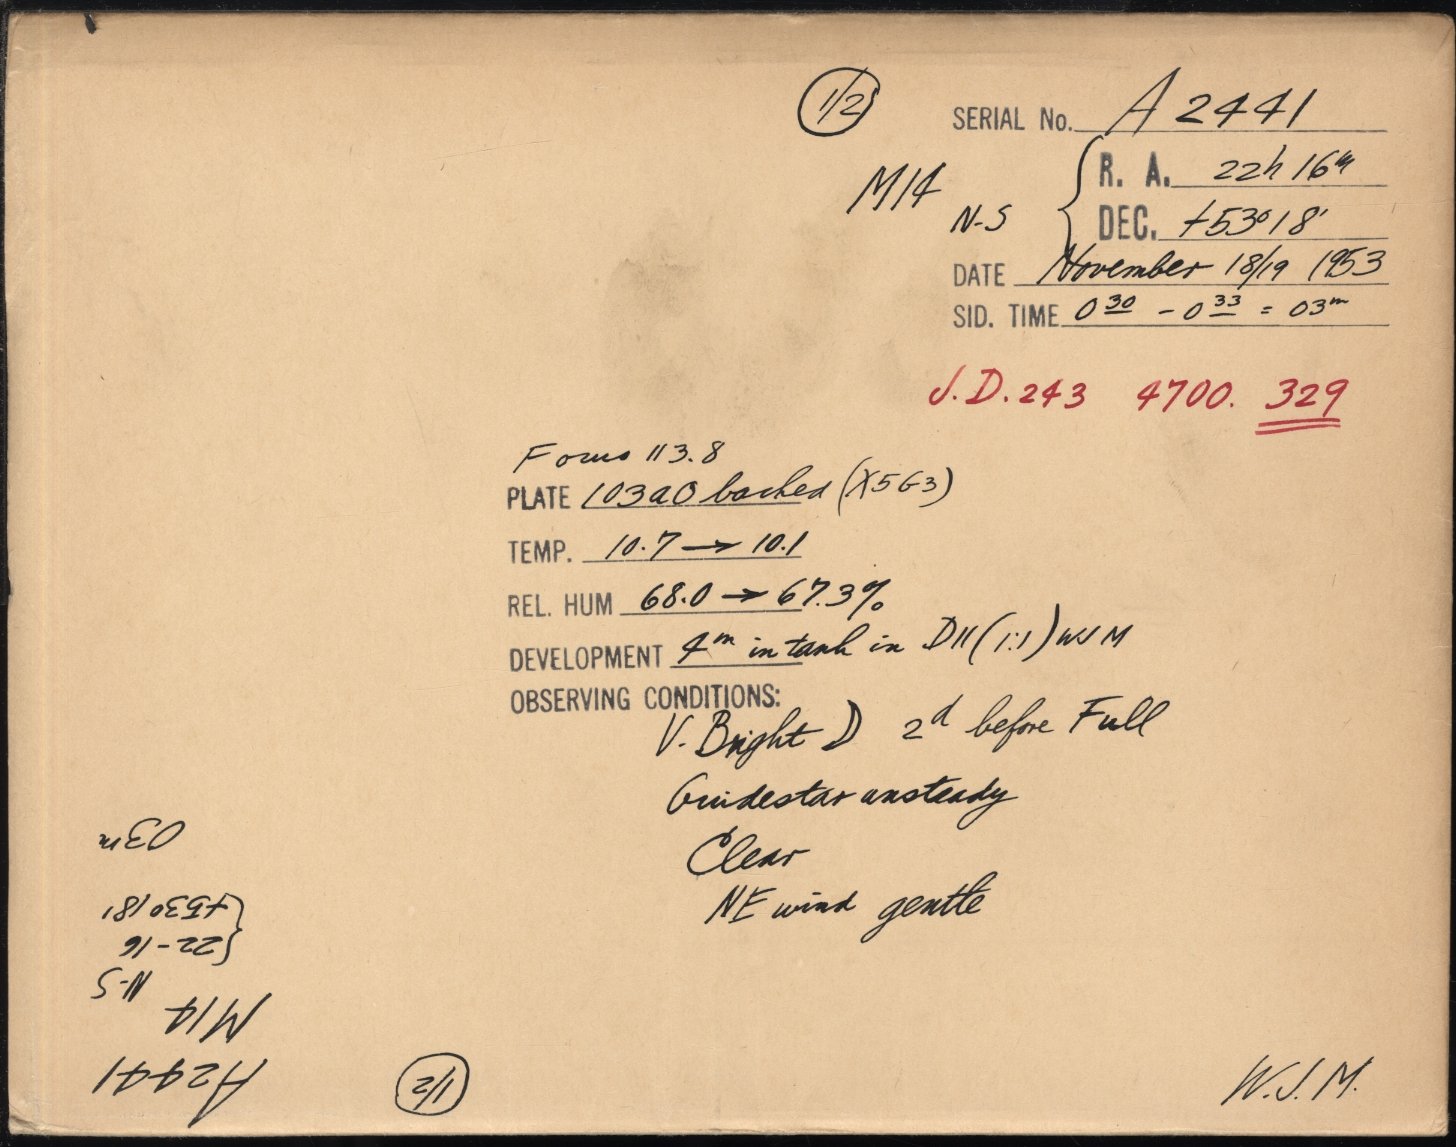 1/2
SERIAL No. A 2441
M14
N-S
R. A. 22h 16m
DEC. +53°18'
DATE November 18/19 1953
SID. TIME 0 30 - 0 33 = 03m
J.D. 243 4700. 329
Focus 113.8
PLATE 103aO backed (X5G3)
TEMP. 10.7 → 10.1
REL. HUM 68.0 → 67.3%
DEVELOPMENT 4m in tank in D11 (1:1) WJM
OBSERVING CONDITIONS:
V. Bright ☽ 2d before Full
Guidestar unsteady
Clear
NE wind gentle
W.J.M.
1/2
A2441
M14
N-S
22-16
+53°18'
03m